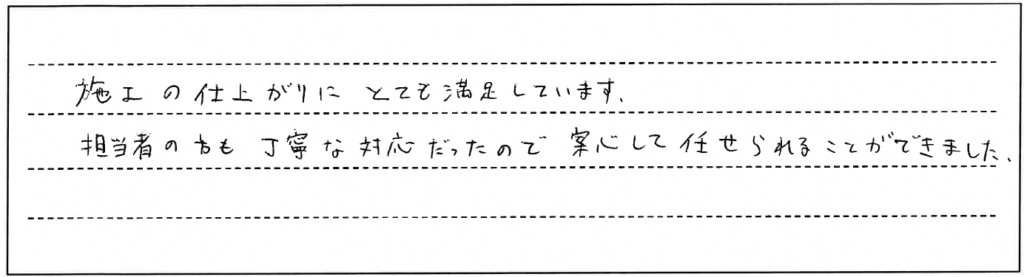 施工の仕上がりにとても満足しています.
担当者の方も丁寧な対応だったので案心して任せられることができました.